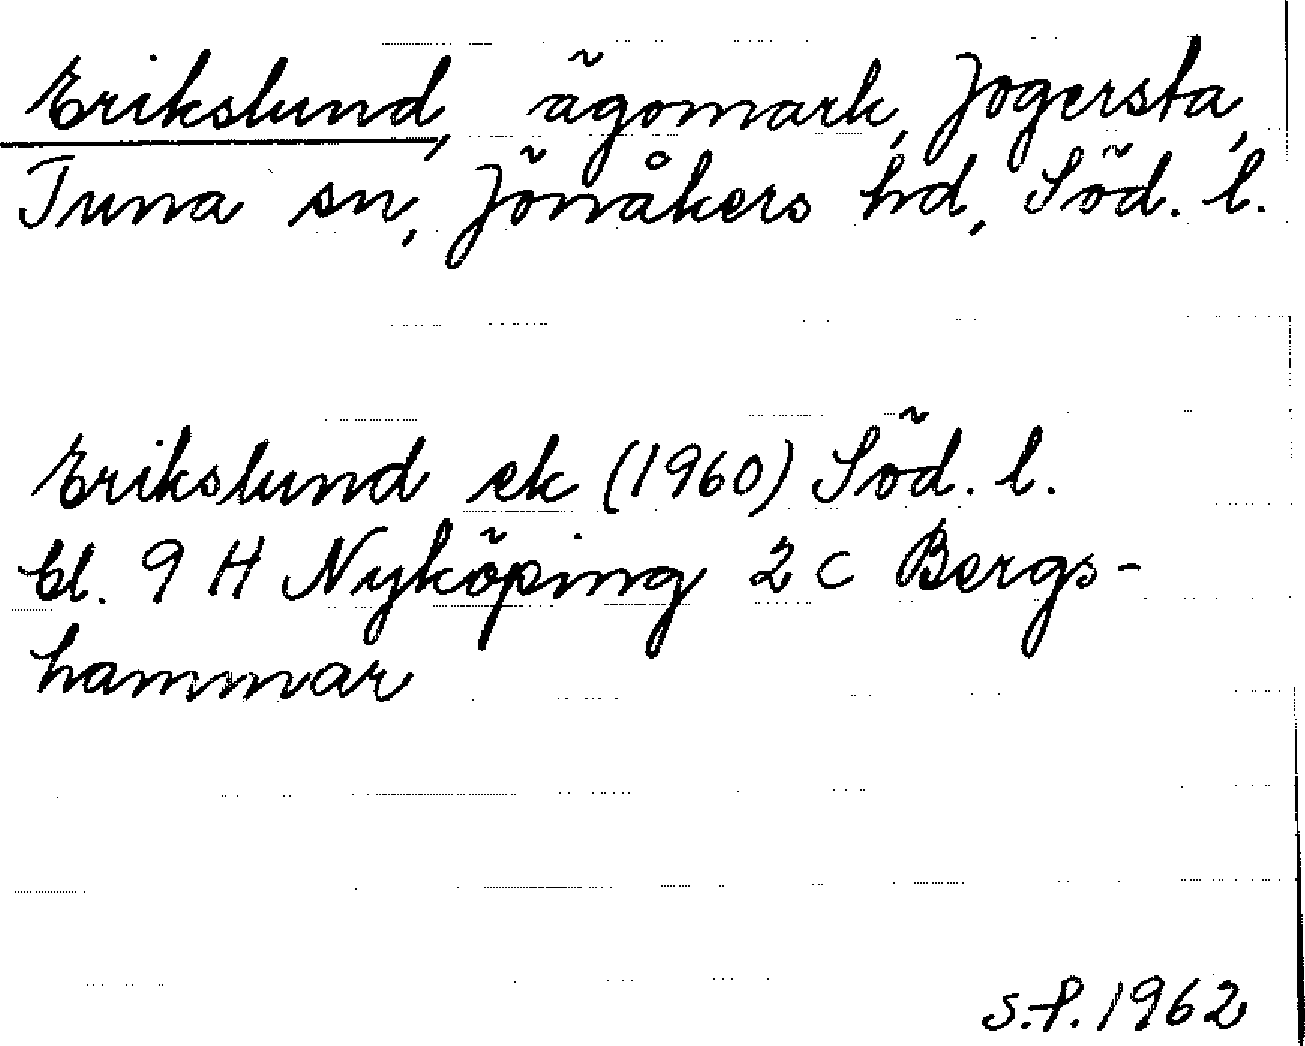 Erikslund, ägomark, Jogersta,
Tuna sn, Jönåkers hd, Söd. l.
Erikslund ek (1960) Söd. l.
bl. 9 H Nyköping 2 C Bergs-
hammar
S.P. 1962